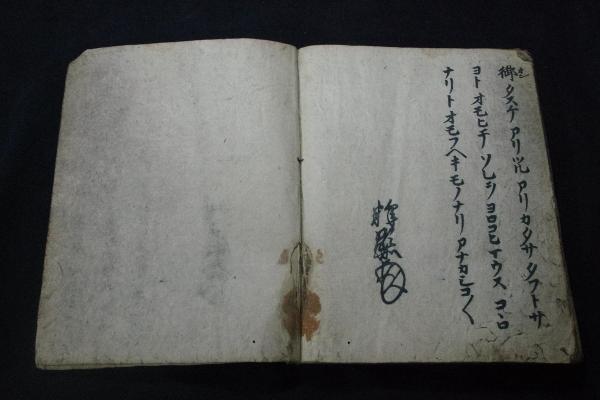 御タスケ アリツル アリカタサ タフトサ
ヨト オモヒテ ソレヲ ヨロコヒ マウス コヽロ
ナリト オモフヘキ モノナリ アナカシコ〱